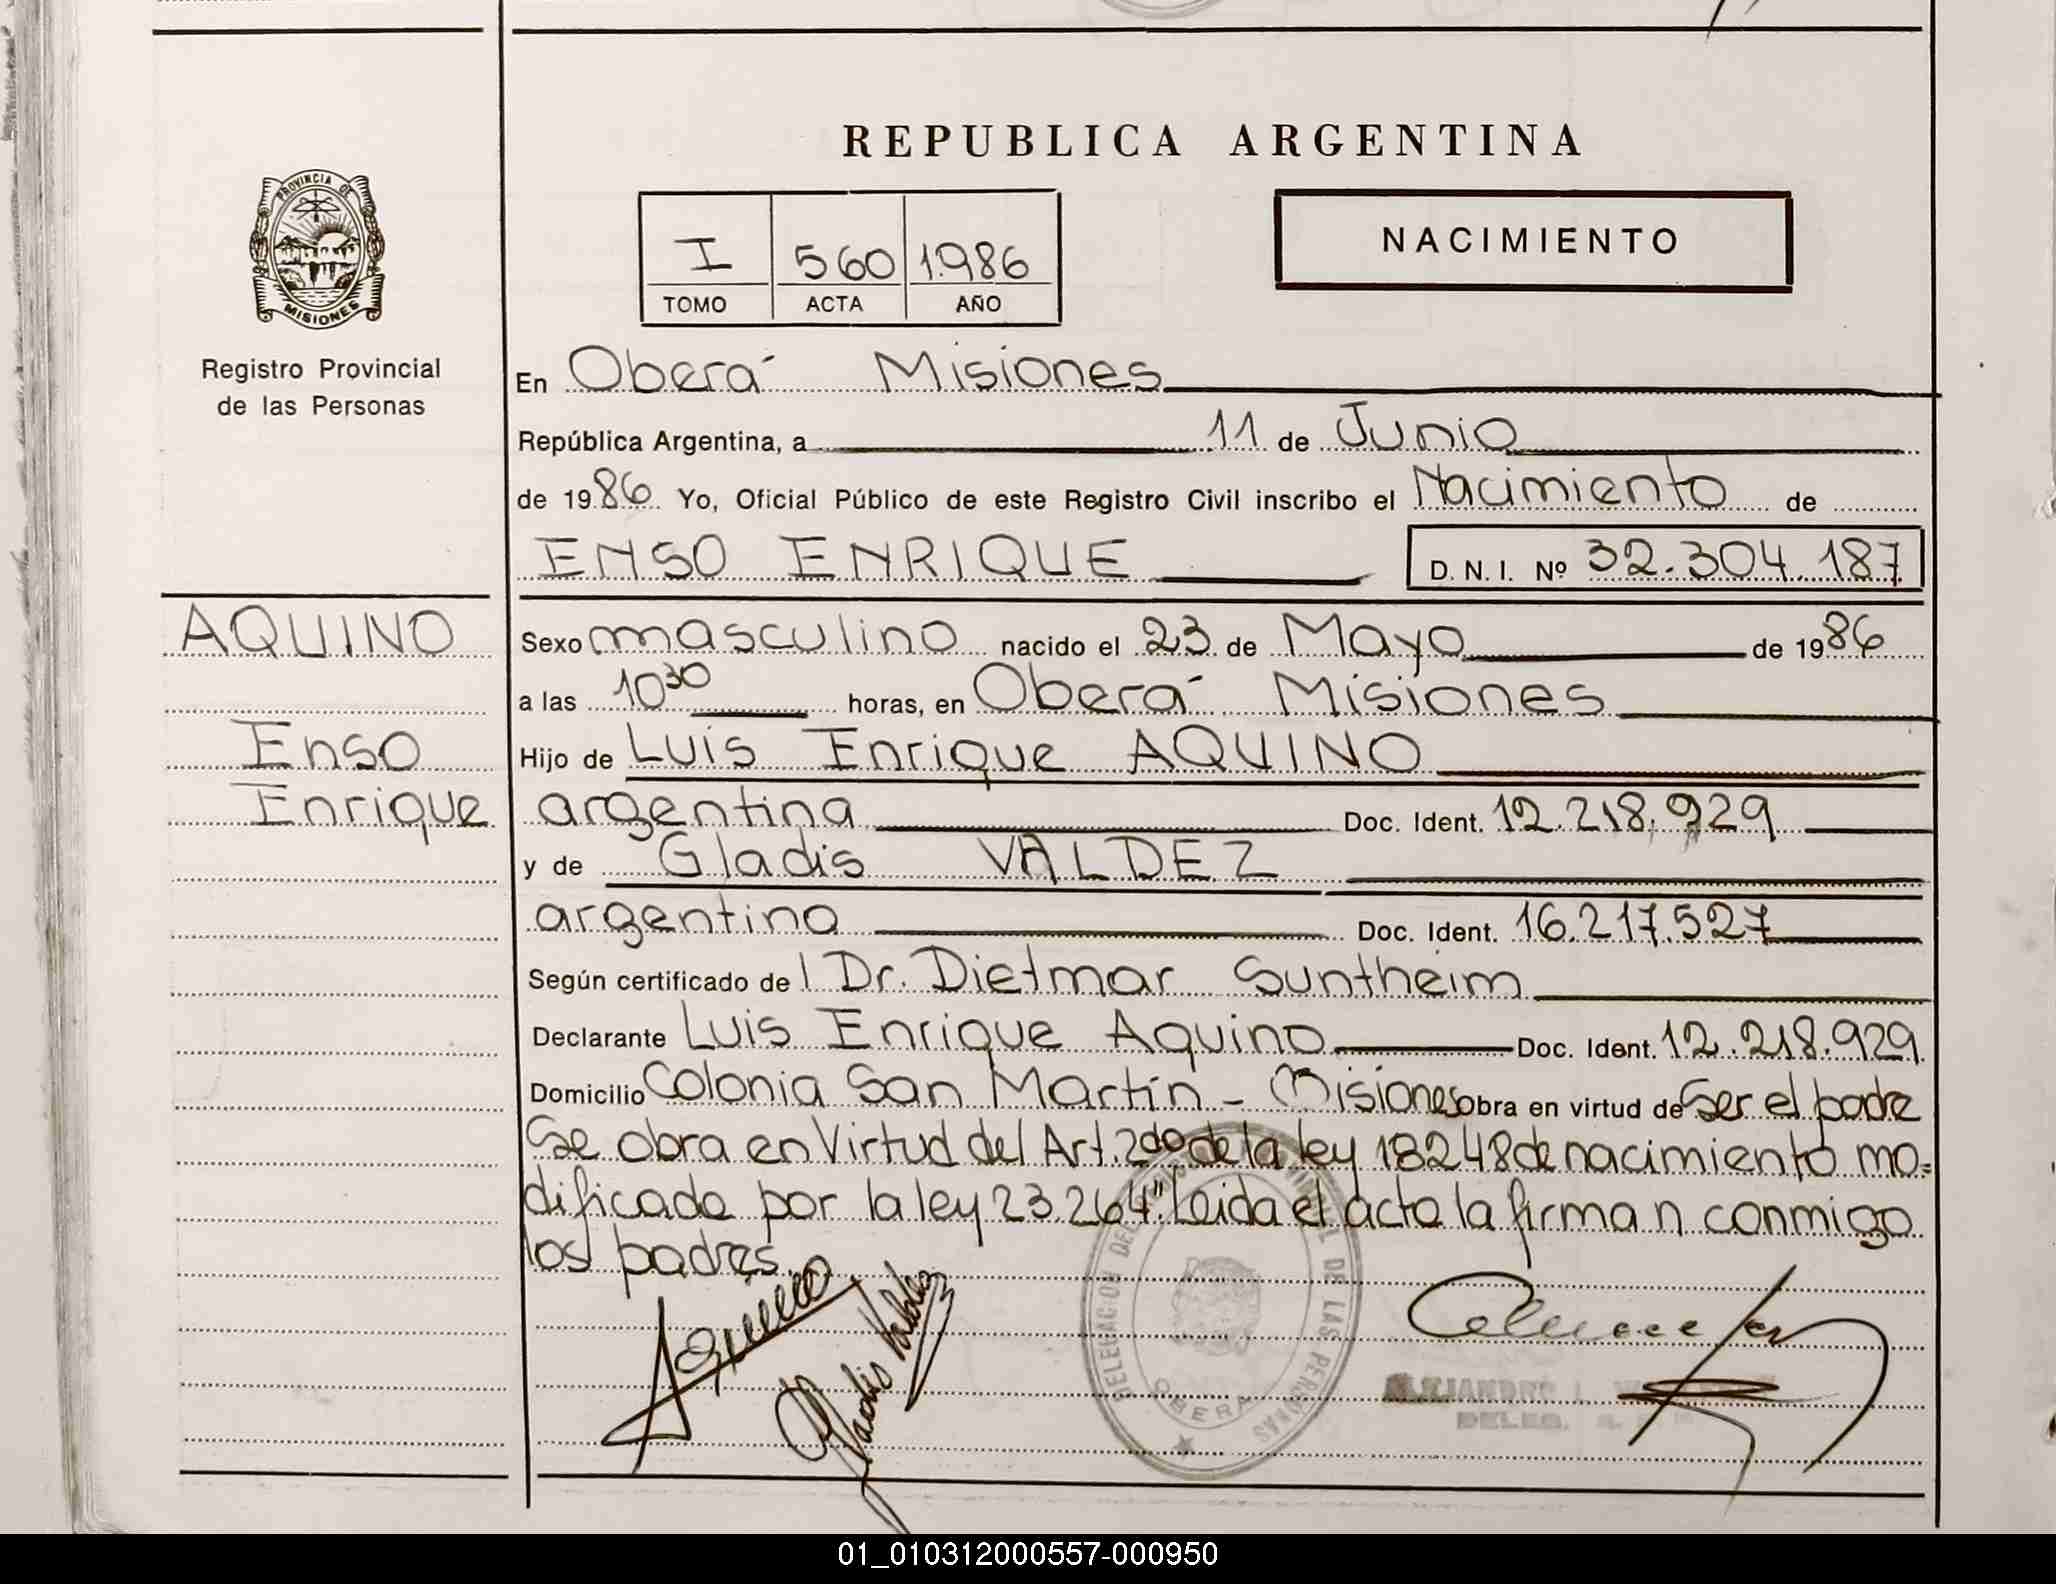 REPUBLICA ARGENTINA
PROVINCIA DE
MISIONES
Registro Provincial
de las Personas
I 560 1.986
TOMO ACTA AÑO
NACIMIENTO
En Oberá Misiones
República Argentina, a 11 de Junio
de 1986 Yo, Oficial Público de este Registro Civil inscribo el Nacimiento de
ENSO ENRIQUE D. N. I. Nº 32.304.187
AQUINO
Enso
Enrique
Sexo masculino nacido el 23 de Mayo de 1986
a las 10 30 horas, en Oberá Misiones
Hijo de Luis Enrique AQUINO
argentina Doc. Ident. 12.218.929
y de Gladis VALDEZ
argentina Doc. Ident. 16.217.527
Según certificado de l Dr. Dietmar Suntheim
Declarante Luis Enrique Aquino Doc. Ident. 12.218.929
Domicilio Colonia San Martín - Misiones obra en virtud de Ser el padre
Se obra en Virtud del Art. 2do de la ley 18248 de nacimiento mo=
dificado por la ley 23.264". Leida el acta la firman conmigo
los padres.
Aquino
Gladis Valdez
DELEGACION DE LAS PERSONAS
OBERA
DELEG.
01_010312000557-000950